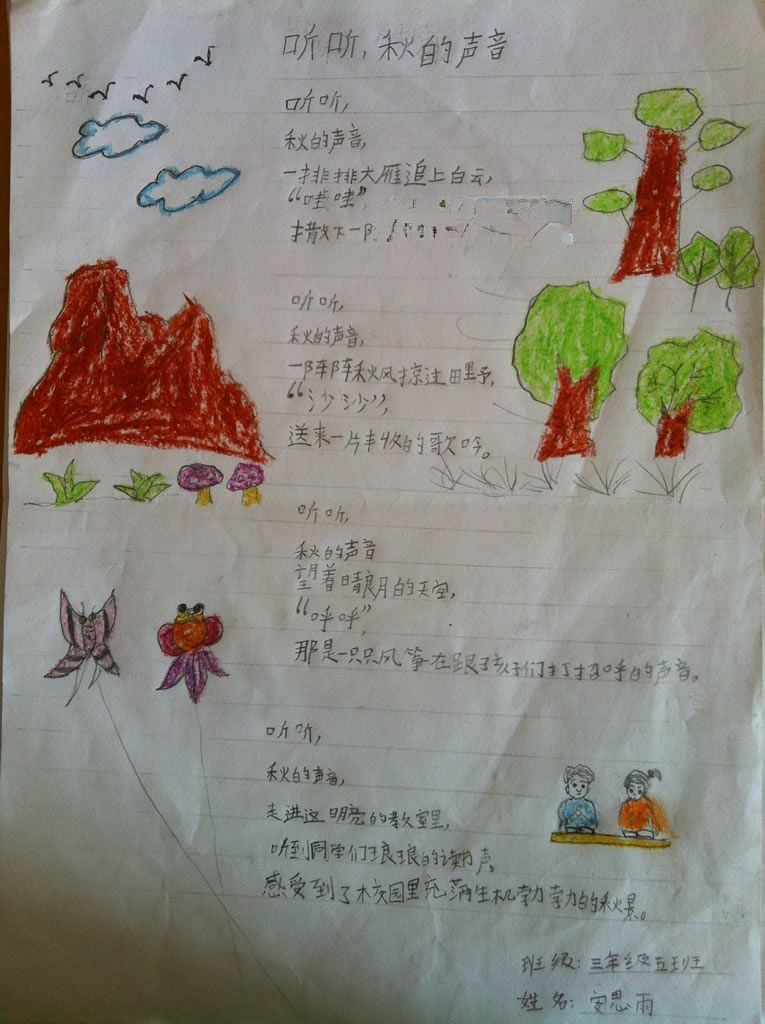 听听,秋的声音
听听,
秋的声音,
一排排大雁追上白云,
“哇哇”,
撒下一阵
听听,
秋的声音,
一阵阵秋风掠过田野,
“沙沙”,
送来一片丰收的歌吟。
听听,
秋的声音
望着晴朗的天空,
“呼呼”,
那是一只只风筝在跟孩子们打招呼的声音。
听听,
秋的声音,
走进这明亮的教室里,
听到同学们琅琅的读书声。
感受到了校园里充满生机勃勃的秋景。
班级:三年级五班
姓名:安思雨